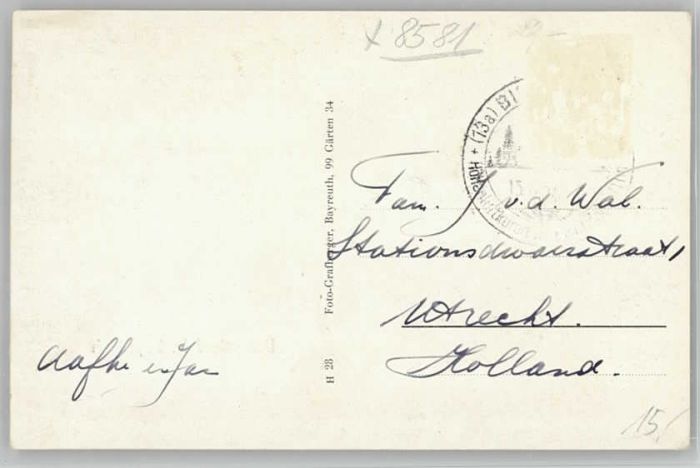 x 8581
(13a) BI
HÖHE
13
Foto-Grafberger, Bayreuth, 99 Gärten 34
H 28
Fam. v.d. Wal.
Stationsdwarsstraat,
Utrecht.
Holland.
Aafke en Jan
15,